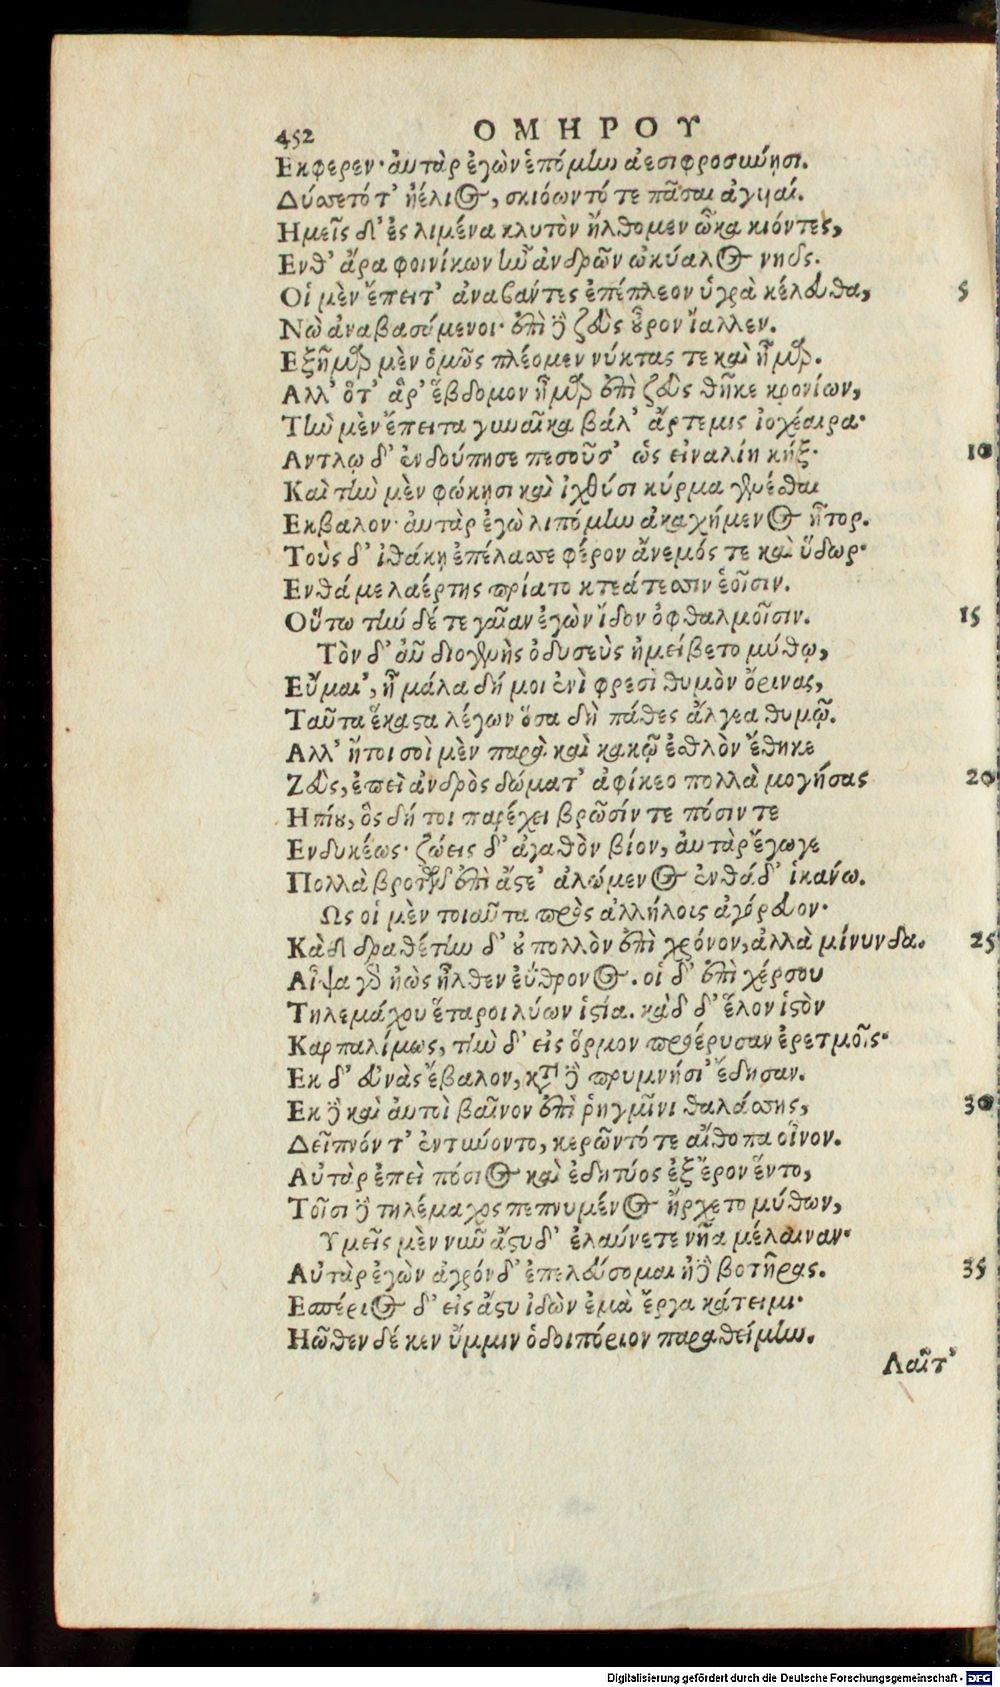 452 ΟΜΗΡΟΥ
Εκφερεν· αὐτὰρ ἐγὼν ἑπόμην ἀεσιφροσύνῃσι.
Δύσετό τ' ἠέλιος, σκιόωντό τε πᾶσαι ἀγυιαί.
Ημεῖς δ' ἐς λιμένα κλυτὸν ἤλθομεν ὦκα κιόντες,
Ενθ' ἄρα φοινίκων ἦν ἀνδρῶν ὠκύαλος νηῦς.
Οἱ μὲν ἔπειτ' ἀναβάντες ἐπέπλεον ὑγρὰ κέλευθα, 5
Νὼ ἀναβασάμενοι· ἐπὶ δὲ ζεὺς οὖρον ἴαλλεν.
Εξῆμαρ μὲν ὁμῶς πλέομεν νύκτας τε καὶ ἦμαρ.
Αλλ' ὅτ' ἄρ' ἕβδομον ἦμαρ ἐπὶ ζεὺς θῆκε κρονίων,
Τὴν μὲν ἔπειτα γυναῖκα βάλ' ἄρτεμις ἰοχέαιρα·
Αντλῳ δ' ἐνδούπησε πεσοῦσ' ὡς εἰναλίη κήξ· 10
Καὶ τὴν μὲν φώκῃσι καὶ ἰχθύσι κύρμα γενέσθαι
Εκβαλον· αὐτὰρ ἐγὼ λιπόμην ἀκαχήμενος ἦτορ.
Τοὺς δ' ἰθάκῃ ἐπέλασσε φέρον ἄνεμός τε καὶ ὕδωρ·
Ενθά με λαέρτης πρίατο κτεάτεσσιν ἑοῖσιν.
Οὕτω τήν δέ τε γαῖαν ἐγὼν ἴδον ὀφθαλμοῖσιν. 15
Τὸν δ' αὖ διογενὴς ὀδυσεὺς ἠμείβετο μύθῳ,
Εὔμαι', ἦ μάλα δή μοι ἐνὶ φρεσὶ θυμὸν ὄρινας,
Ταῦτα ἕκαστα λέγων ὅσα δὴ πάθες ἄλγεα θυμῷ.
Αλλ' ἤτοι σοὶ μὲν παρὰ καὶ κακῷ ἐσθλὸν ἔθηκε
Ζεὺς, ἐπεὶ ἀνδρὸς δώματ' ἀφίκεο πολλὰ μογήσας 20
Ηπίου, ὃς δή τοι παρέχει βρῶσίν τε πόσιν τε
Ενδυκέως· ζώεις δ' ἀγαθὸν βίον, αὐτὰρ ἔγωγε
Πολλὰ βροτῶν ἐπὶ ἄστε' ἀλώμενος ἐνθάδ' ἱκάνω.
Ως οἱ μὲν τοιαῦτα πρὸς ἀλλήλοις ἀγόρευον·
Καδδραθέτην δ' οὐ πολλὸν ἐπὶ χρόνον, ἀλλὰ μίνυνθα. 25
Αἶψα γὰρ ἠὼς ἦλθεν ἐΰθρονος. οἱ δ' ἐπὶ χέρσου
Τηλεμάχου ἕταροι λύων ἱστία. κὰδ δ' ἕλον ἱστὸν
Καρπαλίμως, τὴν δ' εἰς ὅρμον προέρυσαν ἐρετμοῖς·
Εκ δ' εὐνὰς ἔβαλον, κατὰ δὲ πρυμνήσι' ἔδησαν.
Εκ δὲ καὶ αὐτοὶ βαῖνον ἐπὶ ῥηγμῖνι θαλάσσης, 30
Δεῖπνόν τ' ἐντύνοντο, κερῶντό τε αἴθοπα οἶνον.
Αὐτὰρ ἐπεὶ πόσιος καὶ ἐδητύος ἐξ ἔρον ἕντο,
Τοῖσι δὲ τηλέμαχος πεπνυμένος ἤρχετο μύθων,
Υμεῖς μὲν νῦν ἄστυ δ' ἐλαύνετε νῆα μέλαιναν·
Αὐτὰρ ἐγὼν ἀγρόν δ' ἐπελεύσομαι ἠδὲ βοτῆρας. 35
Εσπέριος δ' εἰς ἄστυ ἰδὼν ἐμὰ ἔργα κάτειμι·
Ηῶθεν δέ κεν ὔμμιν ὁδοιπόριον παραθείμην.
Δαῖτ'
Digitalisierung gefördert durch die Deutsche Forschungsgemeinschaft - DFG